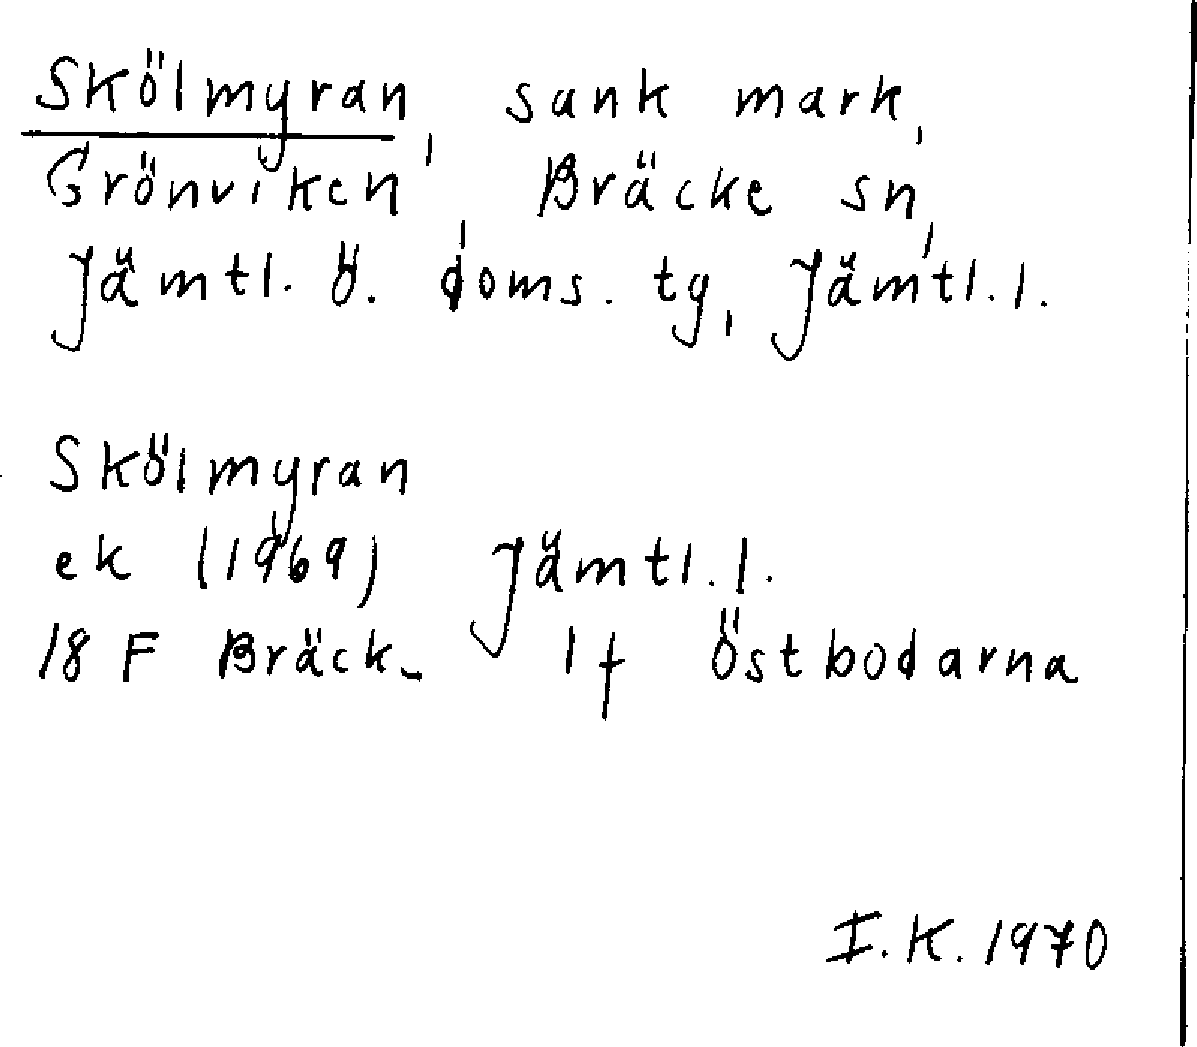 Skölmyran, sank mark,
Grönviken, Bräcke sn,
Jämtl. ö. doms. tg, Jämtl. l.
Skölmyran
ek (1969) Jämtl. l.
18 F Bräck- 1 f Östbodarna
I.K. 1970